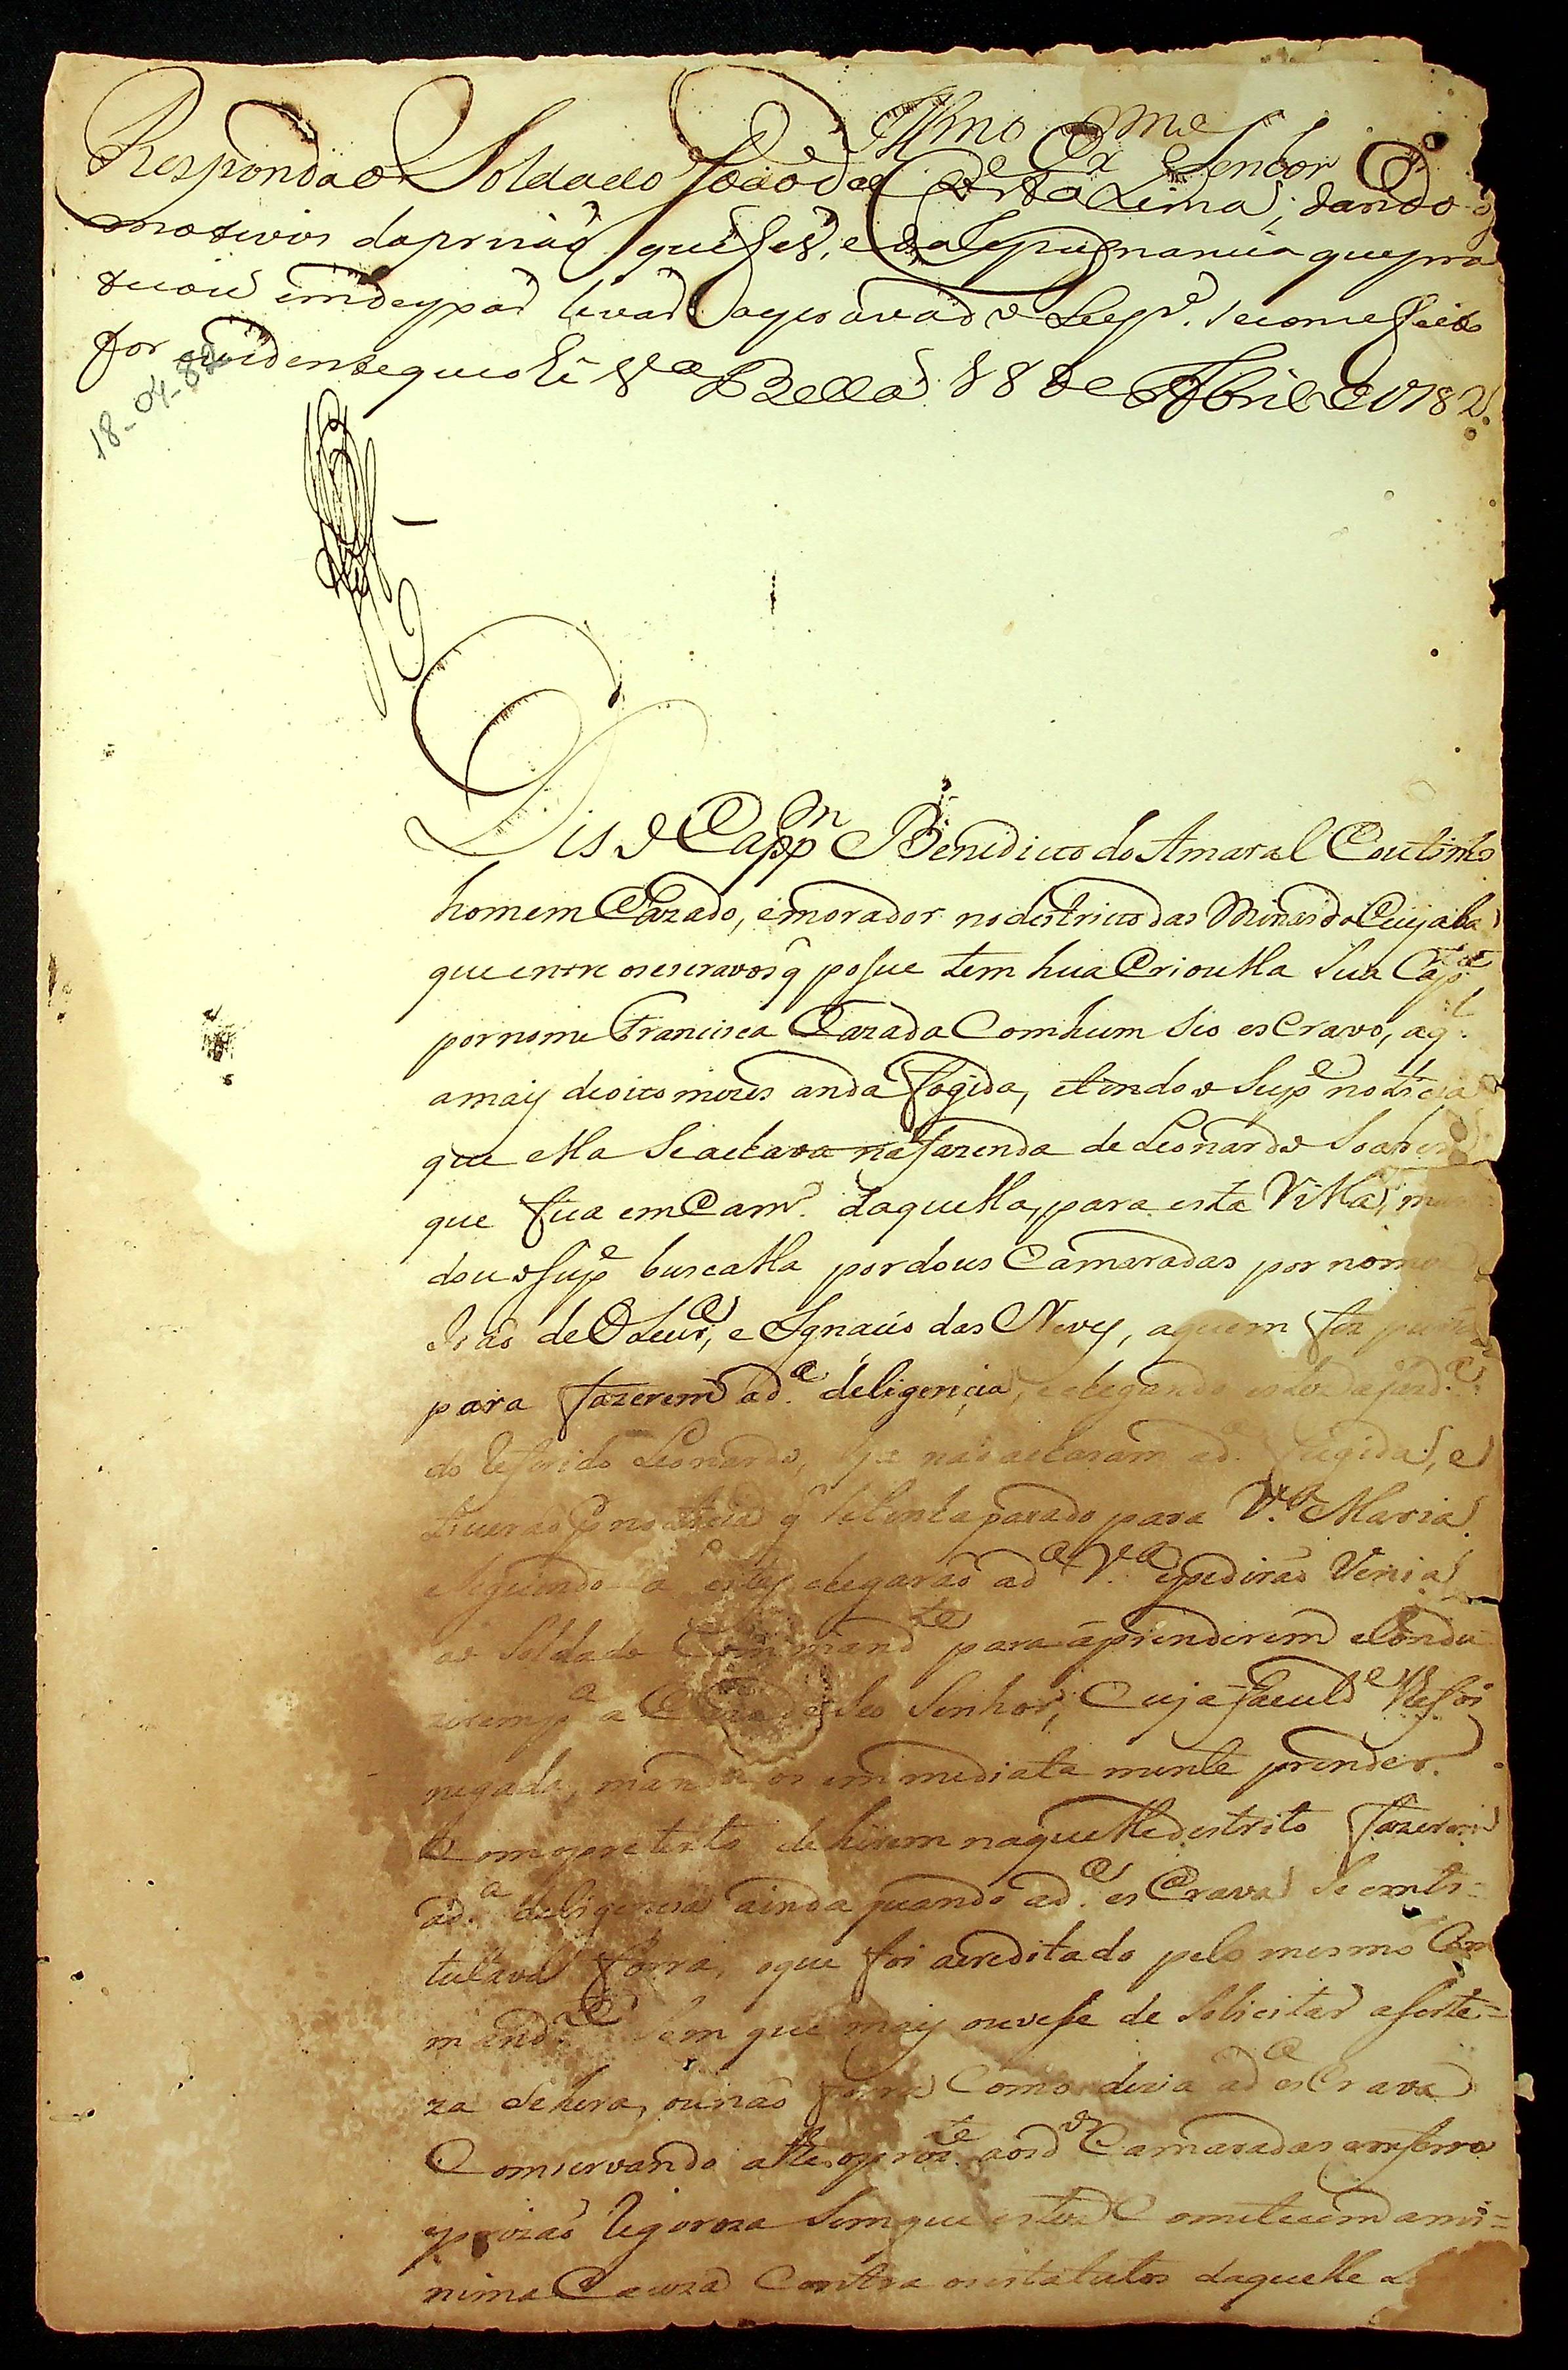 Illmo e Exmo Senhor
Responda o Soldado João da Costa Lima, dando os
motivos da prizaõ que fes, e da repugnancia que pra
ticou em deixar levar a escrava o Supe. se como feitos
for evidente que o hé Va Bella 18 de Abril de 1782.
18-04-82
Dis o Cappm Benedicto do Amaral Coutinho
homem Cazado, e morador no destricto das Minas do Cuyaba
que entre os escravos q̃ posue tem hua Crioulla Sua Capta
por nome Francisca Cazada Com hum Seo esCravo, a ql.
a mais de oito mezes anda fogida, e tendo o Supe noticia
que ella Se achava na fazenda de Leonardo Soares
que fica em Camo. daquella, para esta Villa, man
dou o Supe buscalla por dous Camaradas por nome
João de Olivra, e Ignacio das Neves, a quem fez
para fazerem a da. deligencia, e chegando estes a fazda.
do referido Leonardo, ja naõ acharam a da. fugida, e
tiveraõ por noticia q̃ Se tinha pasado para Va. Maria
e Seguindo a estes chegaraõ a da Va. e pediraõ Venia
ao Soldado Commandte para aprenderem e Condu
zirem pa a Caza de Seo Senhor, Cuja faculde lhe foi
negada, mandou os immediatamente prender.
Com o pretexto de hirem naquelle destrito fazerem
a da. deligencia ainda quando a da. esCrava Se enti=
tulava forra, o que foi acreditado pelo mesmo Com
mandte Sem que mais ouvese de Solicitar a Serte=
za Se hera, ou não forra Como dizia a da esCrava
Conservando athe o prezte. aos dos Camaradas em ferros
e prizaõ rigoroza Sem que estes Cometecem a mi=
nima Cauza Contra os estatutos daquelle